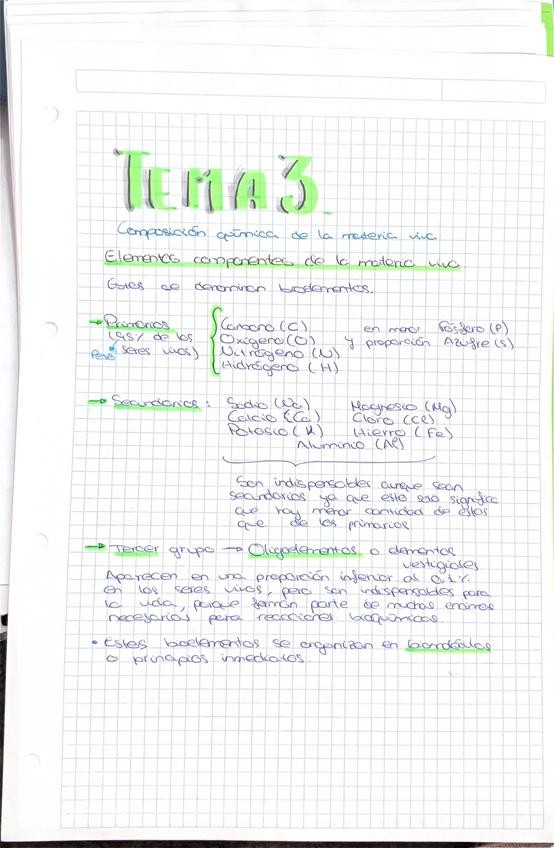 TEMA 3.
Composición química de la materia viva
Elementos componentes de la materia viva.
Estos se denominan bioelementos.
→ Primarios Carbono (C) en menor Fósforo (P)
(95% de los Oxígeno (O) y proporción Azufre (S)
Peso seres vivos) Nitrógeno (N)
Hidrógeno (H)
→ Secundarios: Sodio (Na) Magnesio (Mg)
Calcio (Ca) Cloro (Cl)
Potasio (K) Hierro (Fe)
Aluminio (Al)
Son indispensables aunque sean
secundarios ya que esto solo significa
que hay menor cantidad de estos
que de los primarios
→ Tercer grupo → Oligoelementos o elementos
vestigiales
Aparecen en una proporción inferior al 0,1%
en los seres vivos, pero son indispensables para
la vida, porque forman parte de muchos enzimas
necesarias para reacciones bioquímicas.
• Estos bioelementos se organizan en
o principios inmediatos.